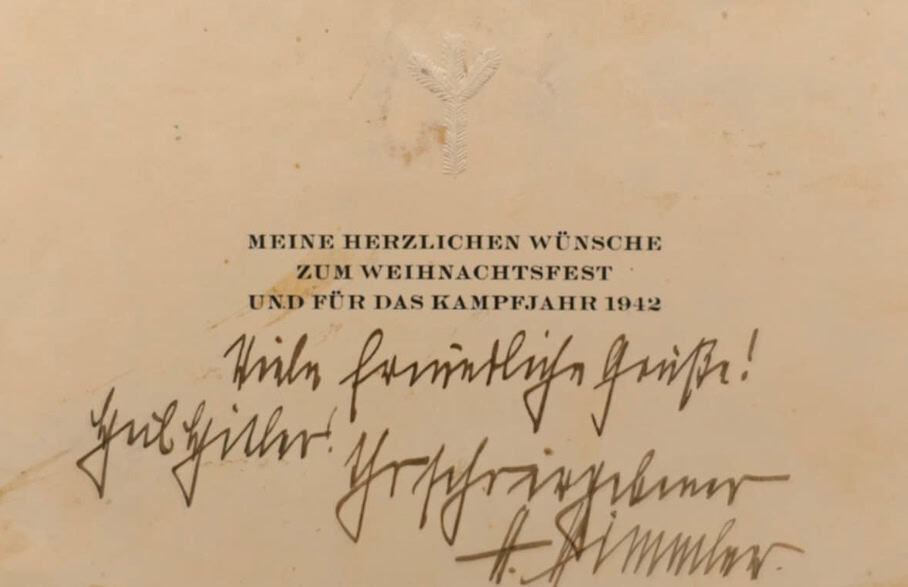 MEINE HERZLICHEN WÜNSCHE
ZUM WEIHNACHTSFEST
UND FÜR DAS KAMPFJAHR 1942
Viele freundliche Grüße!
Heil Hitler!
Ihr sehr ergebener
H. Himmler.